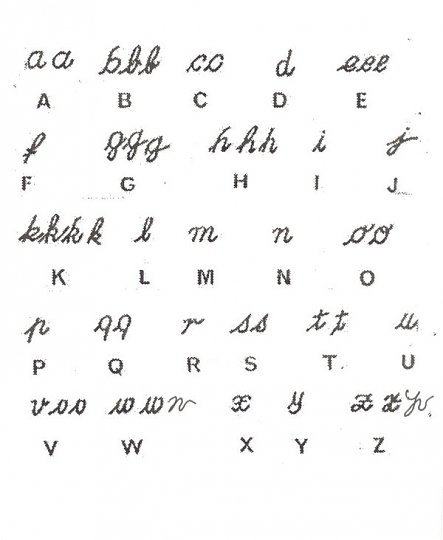 a a b b b c c d e e e
A B C D E
f g g g h h h i j
F G H I J
k k k k l m n o o
K L M N O
p q q r s s t t u
P Q R S T U
v v v w w w x y z z z
V W X Y Z